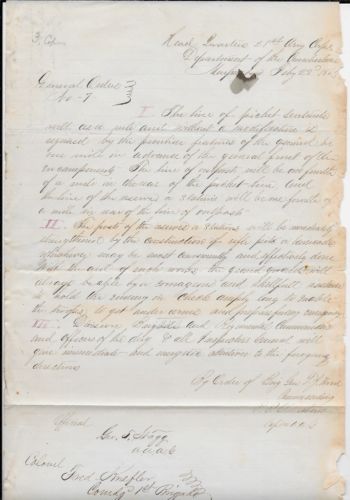 3. Cop
Head Quarters 21st Army Corps
Department of the Cumberland
Feby 22d
General Orders
No 7
I The line of picket sentinels
will as a rule and without a modification is
required by the peculiar features of the ground be
one mile in advance of the general front of the
encampments The line of outposts will be one fourth
of a mile in the rear of the picket-line and
the line of the reserve stations will be one fourth of
a mile in rear of the line of outposts
II The posts of the reserve stations will be immediately
strengthened by the construction of rifle pits
whichever may be most conveniently and effectively done
With the aid of such works the grand guards will
always be able by a courageous and skillful resistance
to hold the enemy in check amply long to enable
the troops to get under arms and
III Division Brigade and Regimental Commanders
and Officers of the day & all Inspectors General will
give immediate and attention to the foregoing
directions
By Order of Brig Gen
Commanding
Official
Geo. S.
A.A.A.G
Colonel
Fred Knefler
Comdg 1st Brigade